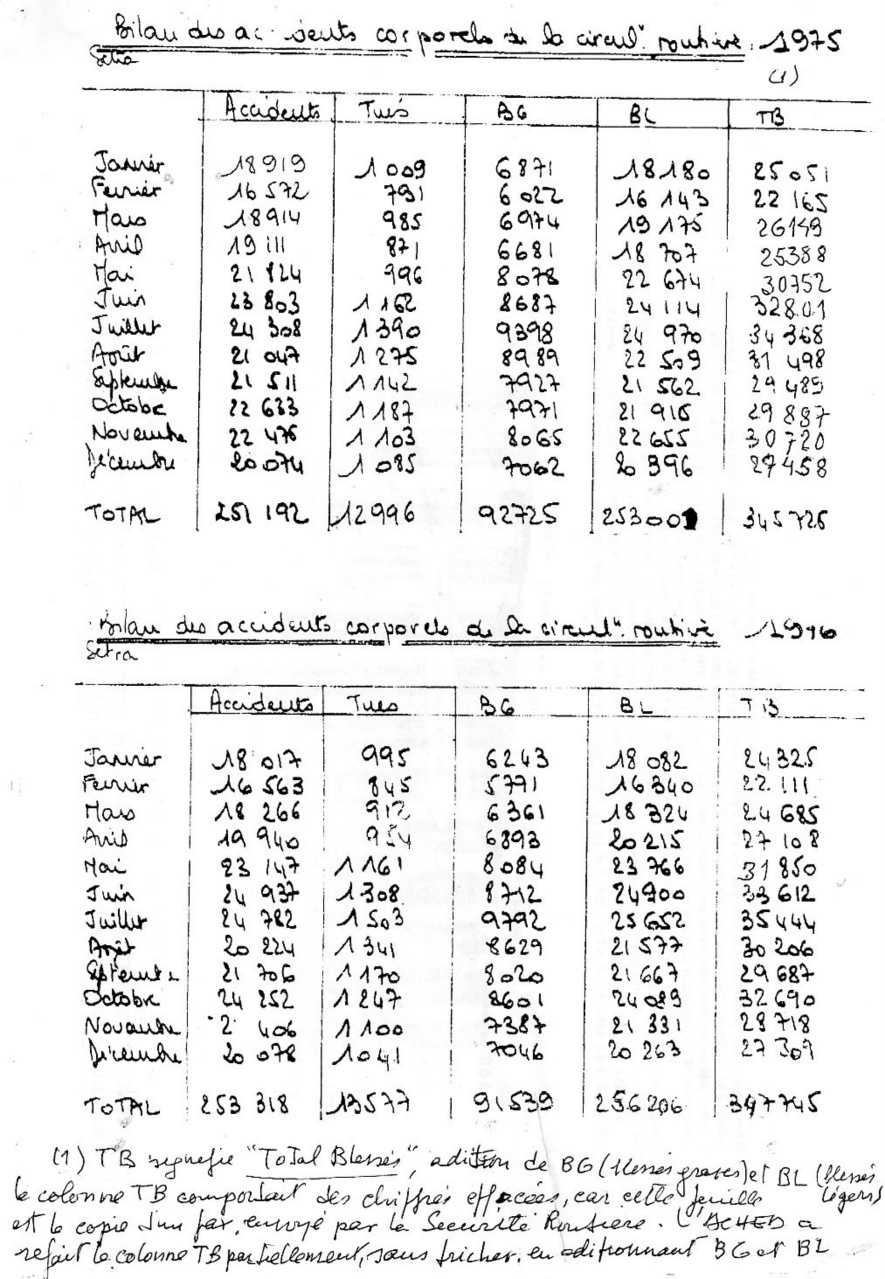 Bilan des ac idents corporels de la circul° routière. 1975
Setra
(1)
Accidents Tués BG BL TB
Janvier 18919 1 009 6871 18180 25051
Fevrier 16 572 791 6 022 16 143 22 165
Mars 18914 985 6974 19 175 26149
Avril 19 111 871 6681 18 707 25388
Mai 21 824 996 8078 22 674 30752
Juin 23 803 1 162 8687 24 114 32801
Juillet 24 308 1 390 9398 24 970 34 368
Août 21 047 1 275 8989 22 509 31 498
Septembre 21 511 1 142 7927 21 562 29 489
Octobre 22 633 1 187 7971 21 916 29 887
Novembre 22 476 1 103 8065 22 655 30 720
Décembre 20 074 1 085 7062 20 396 27458
TOTAL 251 192 12996 92725 253001 345726
Bilan des accidents corporels de la circul°. routière 1976
Setra
Accidents Tues BG BL TB
Janvier 18 017 995 6243 18 082 24325
Fevrier 16 563 845 5771 16340 22 111
Mars 18 266 912 6361 18 324 24 685
Avril 19 940 954 6893 20 215 27 108
Mai 23 147 1 161 8084 23 766 31 850
Juin 24 937 1 308 8712 24900 33 612
Juillet 24 782 1 503 9792 25 652 35 444
Août 20 224 1 341 8629 21 577 30 206
Septembre 21 706 1 170 8020 21 667 29 687
Octobre 24 252 1 247 8601 24 089 32 690
Novembre 2 406 1 100 7387 21 331 28 718
Décembre 20 078 1041 7046 20 263 27 309
TOTAL 253 318 13577 91539 256206 347745
(1) TB signefie "Total Blessés", adition de BG (blessés graves) et BL (blessés légers)
le colonne TB comportait des chiffres effacées, car cette feuille
est le copie d'un fax, envoyé par la Securité Routiere. L'ACHED a
refait le colonne TB partiellement, sans tricher. en aditionnant BG et BL